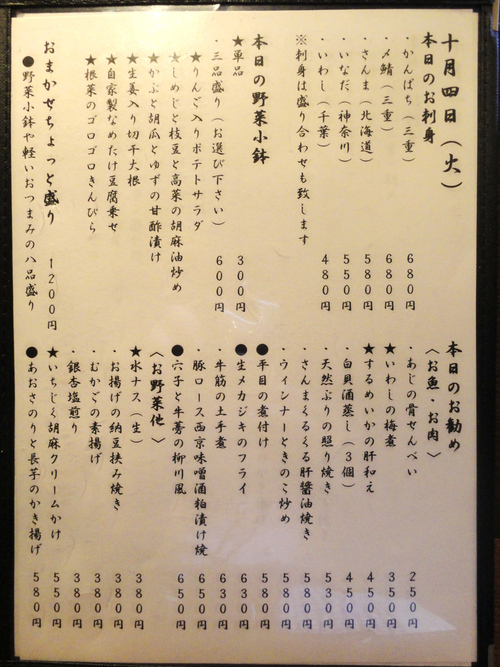 十月四日(火)
本日のお刺身
・かんぱち(三重) 680円
・〆鯖(三重) 680円
・さんま(北海道) 580円
・いなだ(神奈川) 550円
・いわし(千葉) 480円
※刺身は盛り合わせも致します
本日の野菜小鉢
★単品 300円
・三品盛り(お選び下さい) 600円
★りんご入りポテトサラダ
★しめじと枝豆と高菜の胡麻油炒め
★かぶと胡瓜とゆずの甘酢漬け
★生姜入り切干大根
★自家製なめたけ豆腐乗せ
★根菜のゴロゴロきんぴら
おまかせちょっと盛り 1200円
●野菜小鉢や軽いおつまみの八品盛り
本日のお勧め
〈お魚・お肉〉
・あじの骨せんべい 250円
★いわしの梅煮 350円
★するめいかの肝和え 450円
・白貝酒蒸し(3個) 450円
・天然ぶりの照り焼き 530円
・さんまくるくる肝醤油焼き 580円
・ウィンナーときのこ炒め 580円
●平目の煮付け 580円
●生メカジキのフライ 630円
・牛筋の土手煮 630円
・豚ロース西京味噌酒粕漬け焼 650円
●穴子と牛蒡の柳川風 650円
〈お野菜他〉
★水ナス(生) 380円
・お揚げの納豆挟み焼き 380円
・むかごの素揚げ 380円
・銀杏塩煎り 380円
★いちじく胡麻クリームかけ 550円
●あおさのりと長芋のかき揚げ 580円